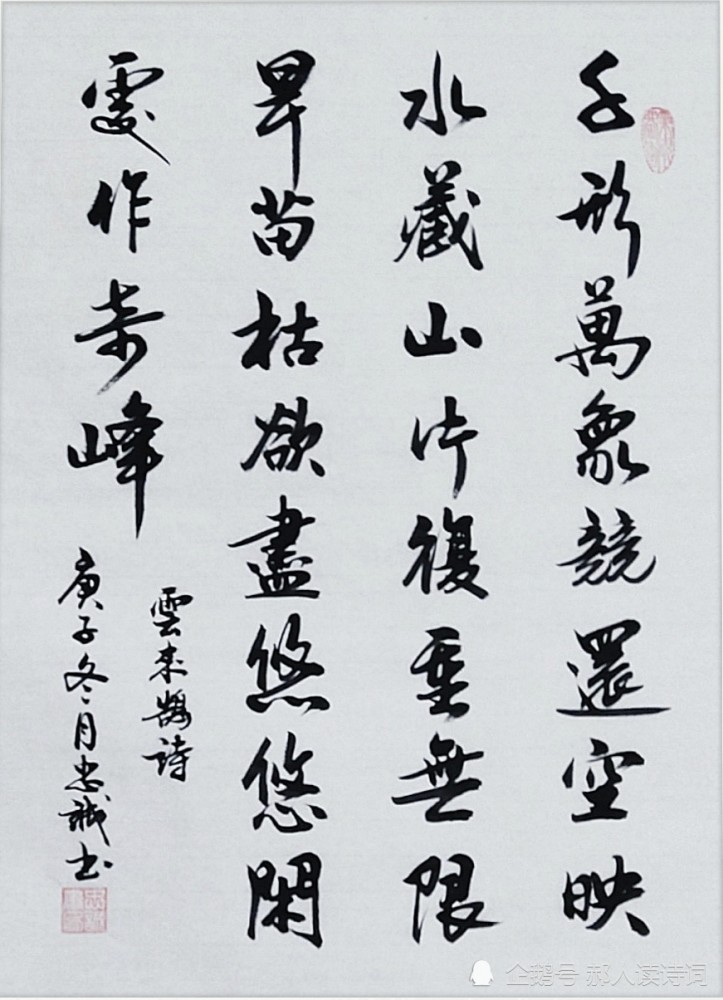 千形萬象競還空映
水藏山片復重無限
旱苗枯欲盡悠悠閑
處作奇峰
雲来鵠詩
庚子冬月忠誠书
企鹅号 郝人读诗词